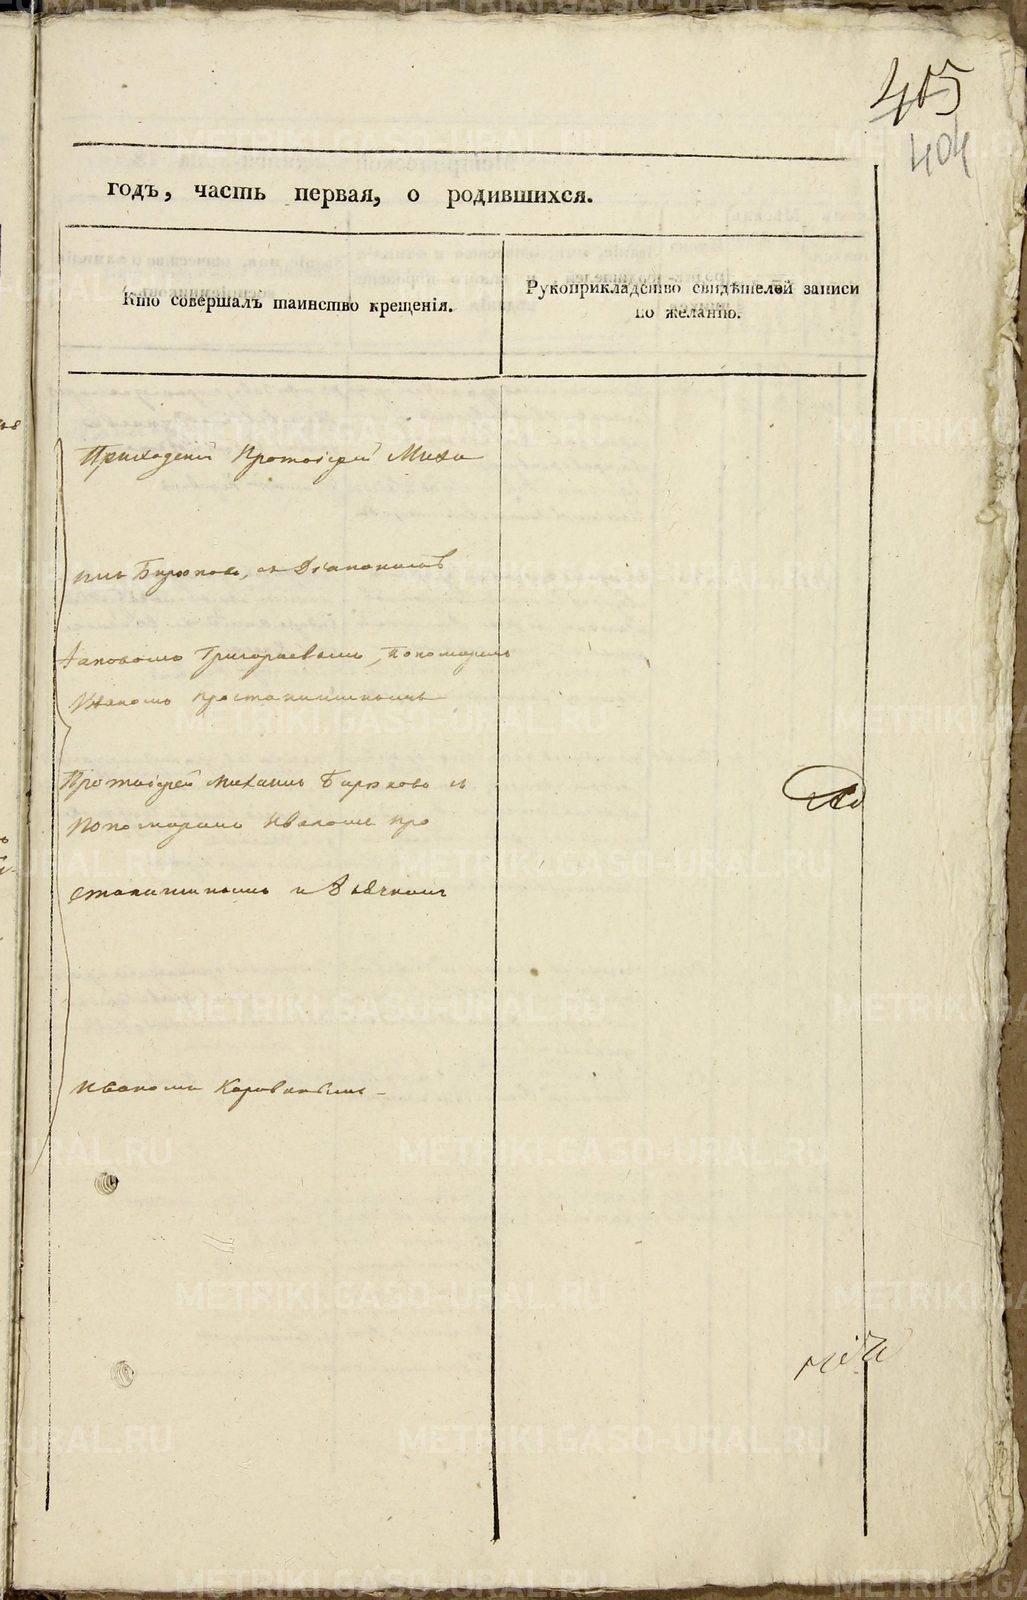 405
404
годъ, часть первая, о родившихся.
Кто совершалъ таинство крещенія.
Рукоприкладство свидѣтелей записи
по желанію.
Приходскій Протоіерей Миха
илъ Бирюковъ, съ Діакономъ
Іаковомъ Григорьевымъ, Пономаремъ
Иваномъ Простакишинымъ
Протоіерей Михаилъ Бирюковъ съ
Пономаремъ Иваномъ Про
стакишинымъ и Дьячкомъ
Иваномъ Коровинымъ
METRIKI.GASO-URAL.RU